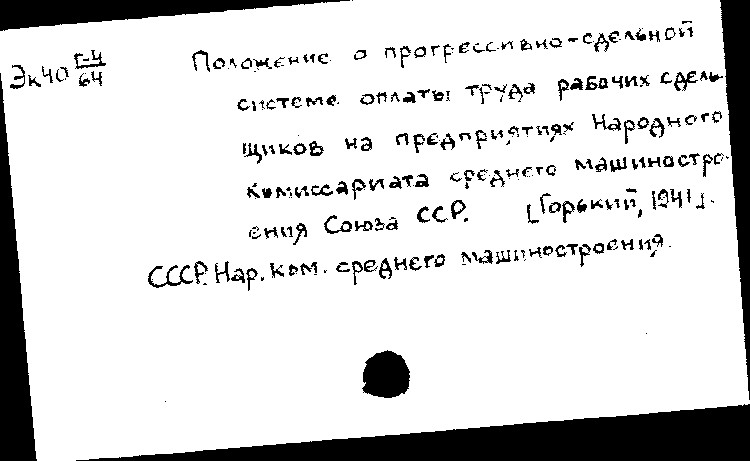 Эк40 Г-4/64
Положение о прогрессивно-сдельной
системе оплаты труда рабочих сдель-
щиков на предприятиях Народного
Комиссариата среднего машиностро-
ения Союза ССР. [Горький, 1941].
СССР. Нар. ком. среднего машиностроения.